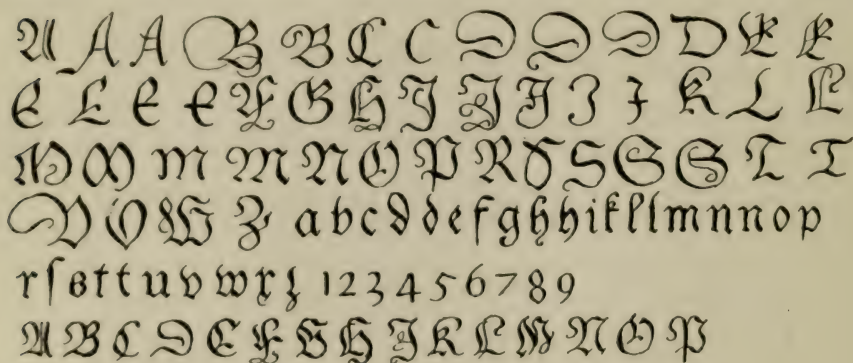 A A A B B C C D D D D E E
E E E E F G H J J J J J K L L
M M m M N O P R S S S S T T
V V W Z a b c d d e f g h h i k l l m n n n o p
r ſ s t t u v w x z 1 2 3 4 5 6 7 8 9
A B C D E F G H J K L M N O P